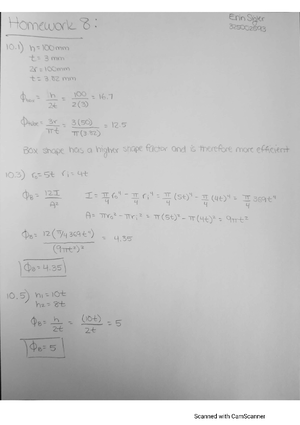 Homework 8:
Erin Siger
10.1) h=100mm
t=3mm
2r=100mm
t=3.82mm
Φbox = h/2t = 100/2(3) = 16.7
Φtube = 3r/πt = 3(50)/π(3.82) = 12.5
Box shape has a higher shape factor and is therefore more efficient
10.3) r₀=5t r₁=4t
Φ_B = 12I/A² I = π/4 r₀⁴ - π/4 r₁⁴ = π/4 (5t)⁴ - π/4 (4t)⁴ = π/4 369t⁴
A = πr₀² - πr₁² = π(5t)² - π(4t)² = 9πt²
Φ_B = 12(π/4 369t⁴)/(9πt²)² = 4.35
Φ_B = 4.35
10.5) h₁=10t
h₂=8t
Φ_B = h/2t = (10t)/2t = 5
Φ_B = 5
Scanned with CamScanner